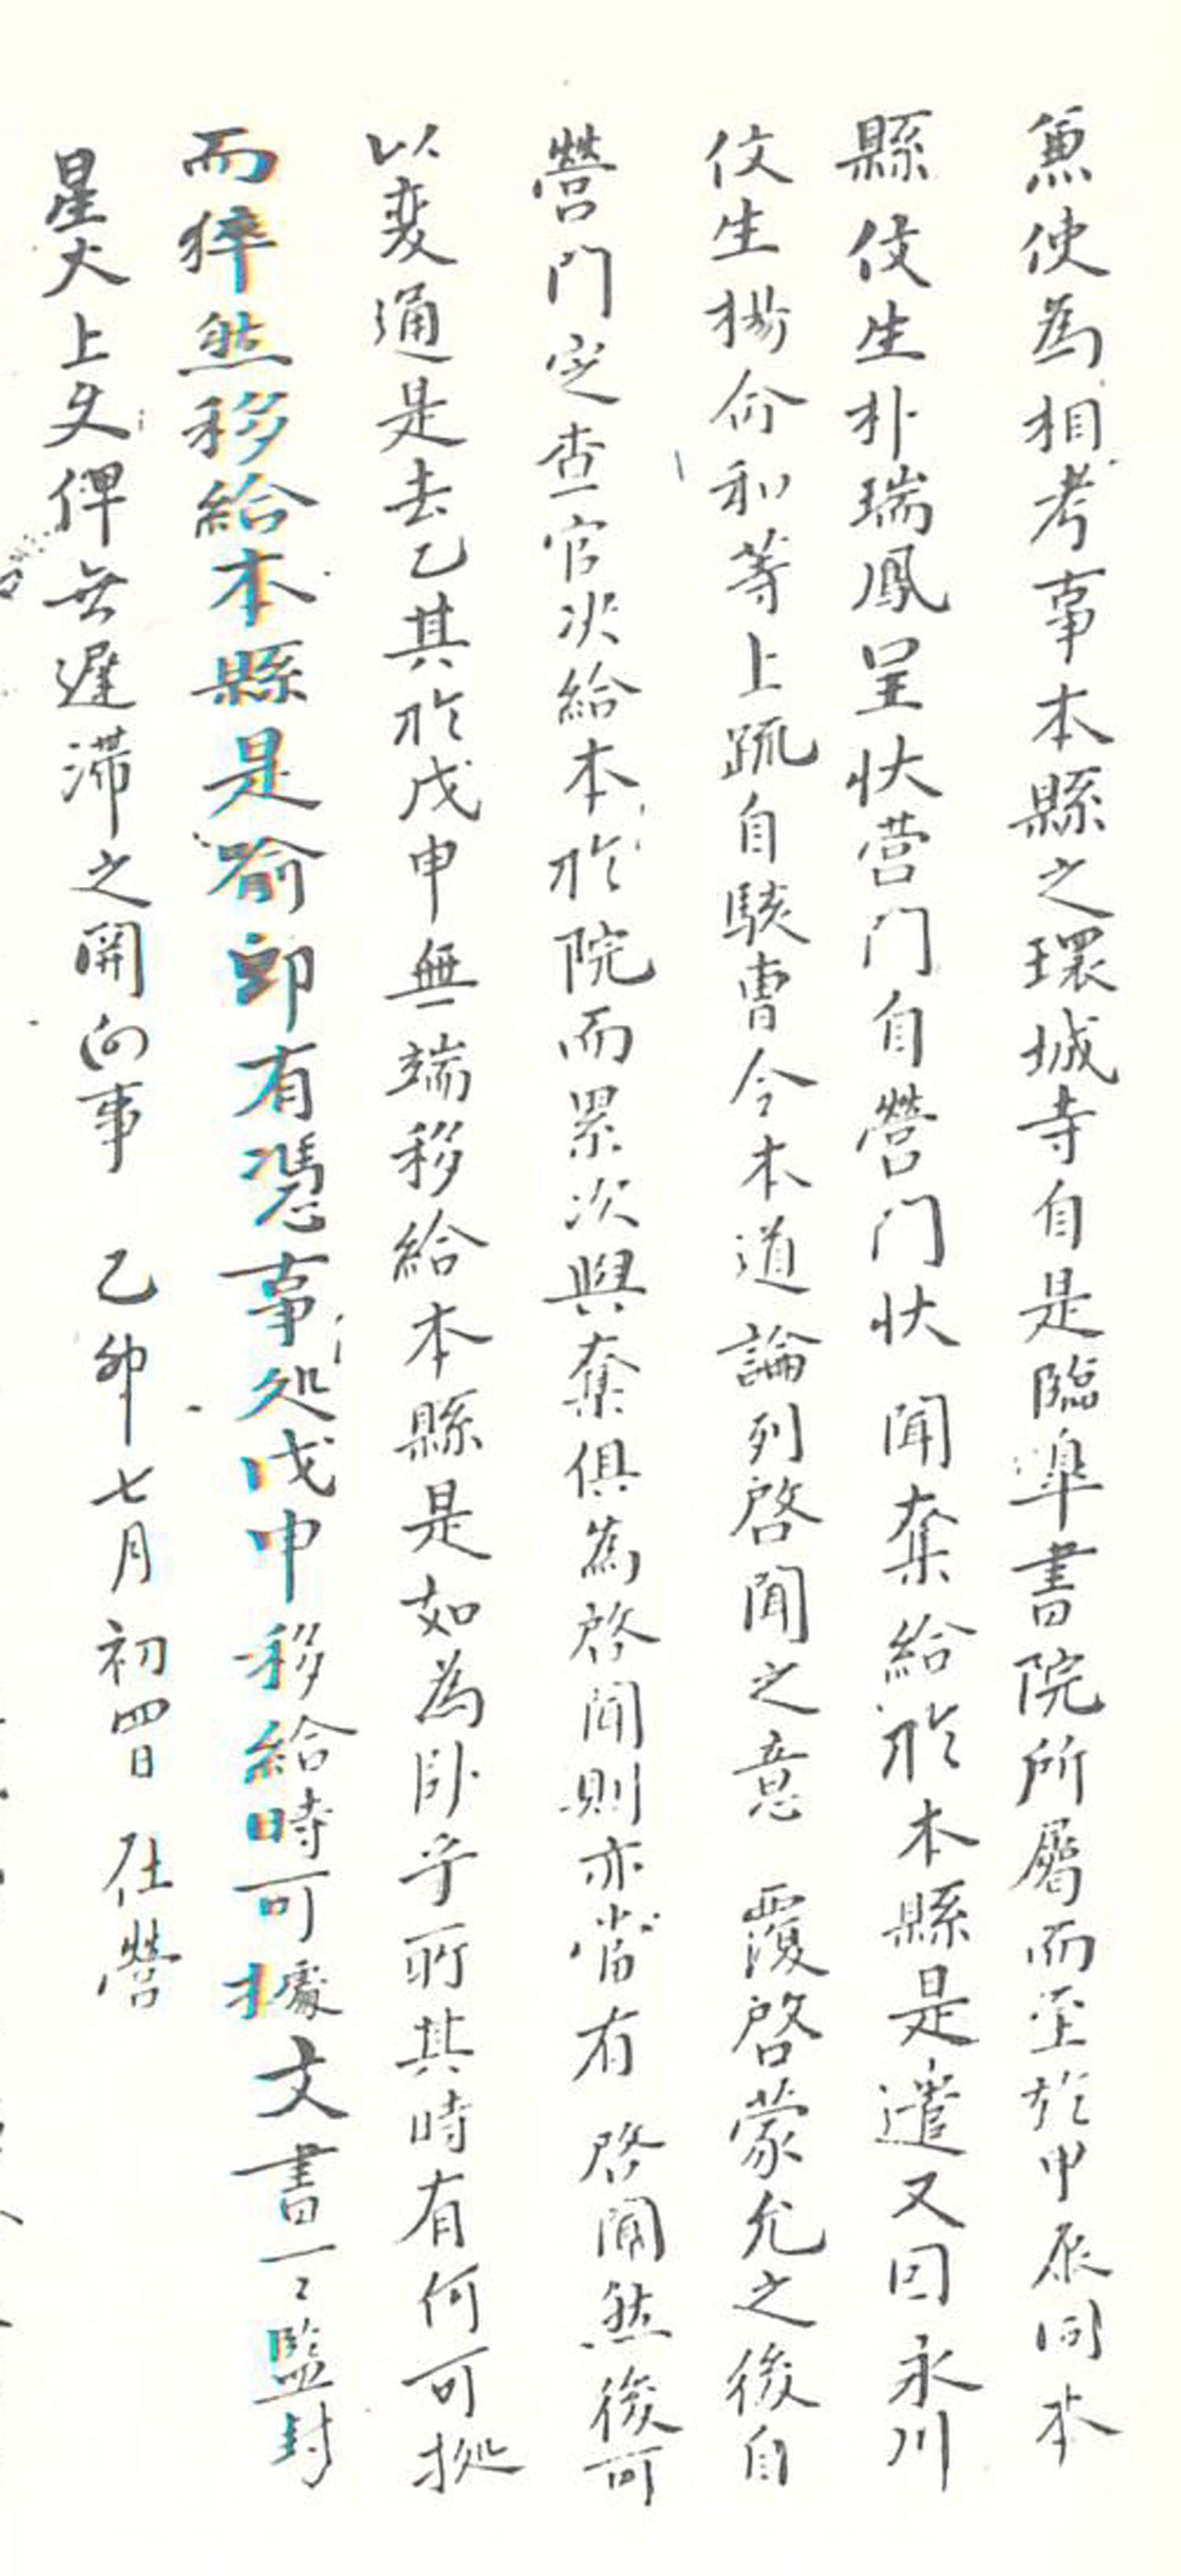 兼使為相考事本縣之環城寺自是臨準書院所屬而至於甲辰间本
縣伎生朴瑞鳳呈狀营门自營门状 聞奪給於本縣是遣又因永川
伎生楊命和等上疏自駭曺令本道論列啓聞之意 覆啓蒙允之後自
營門定查官决給本於院而累次與奪俱為啓聞則亦當有 啓聞然後可
以変通是去乙其於戊申無端移給本縣是如為卧乎所其時有何可拠
而猝然移給本縣是喻即有憑事処戊申移給時可據文書一〻監封
星火上夂俾无遲滞之関向事 乙卯七月初四日 在營